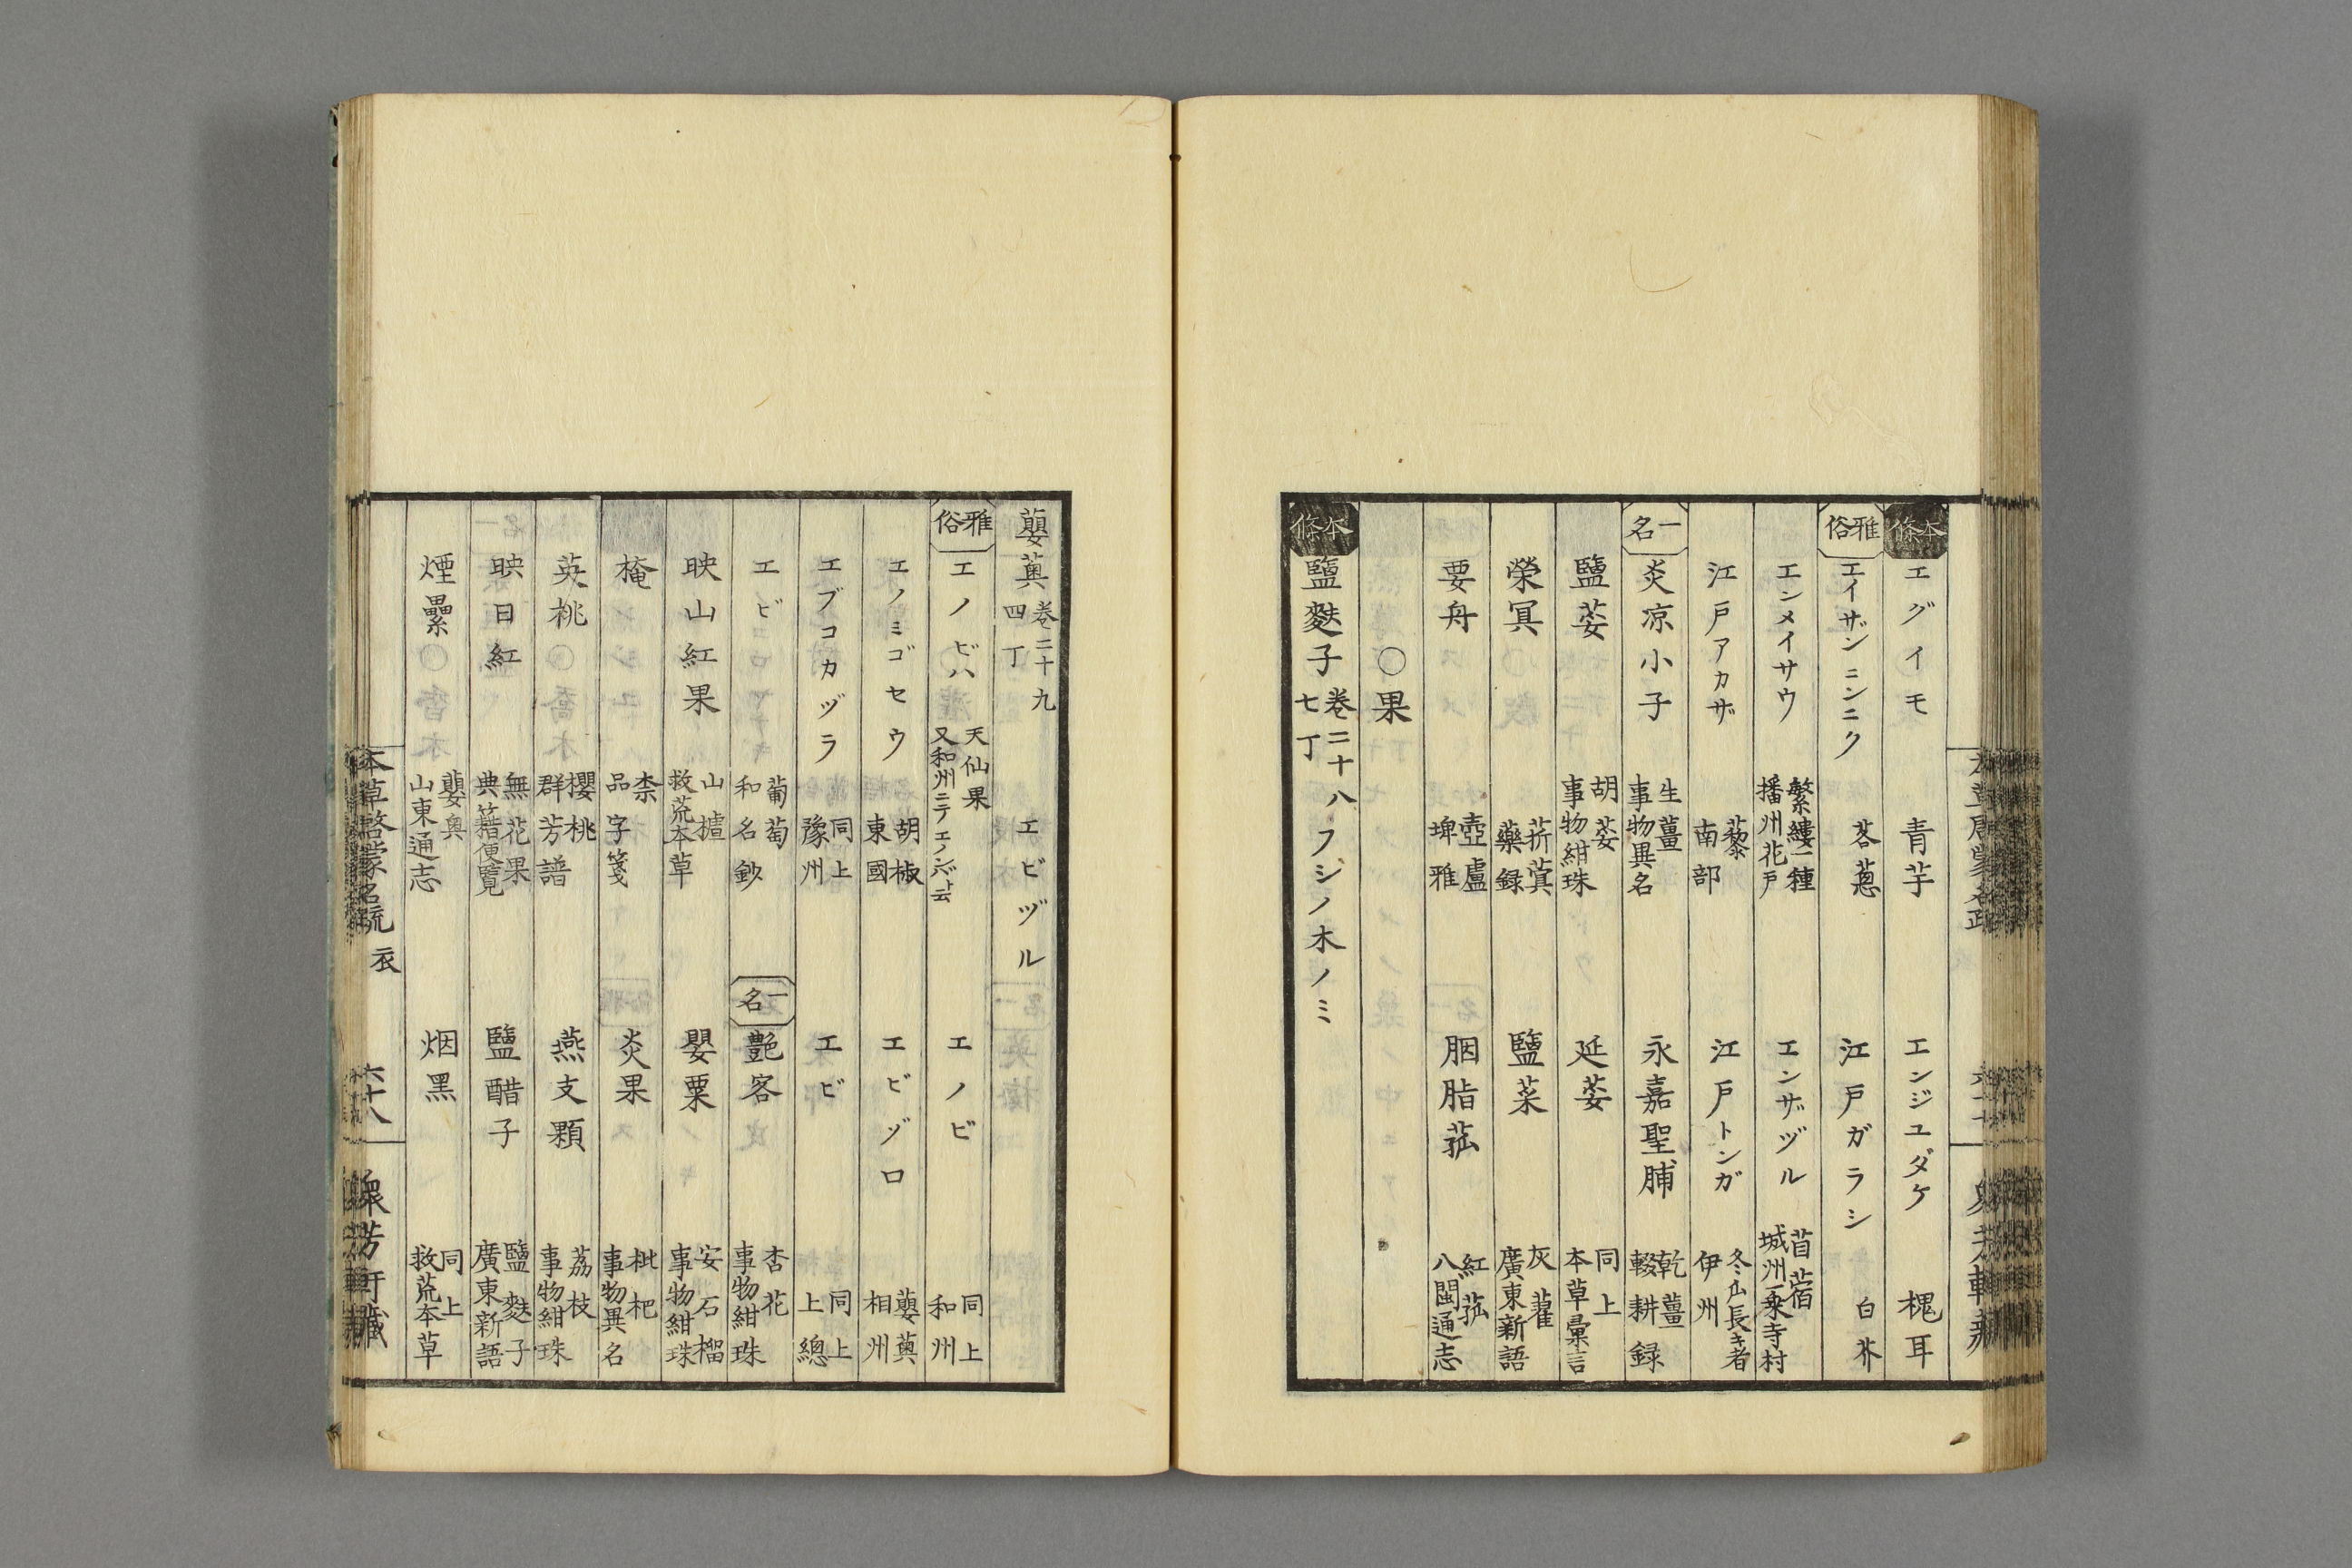 本條 エグイモ 青芋 エンジユダケ 槐耳
雅俗 エイザンニンニク 茖葱 江戸ガラシ 白芥
エンメイサウ 繁縷一種 播州花戸 エンザヅル 苜蓿 城州一乗寺村
江戸アカザ 藜 南部 江戸トンガ 冬瓜長者 伊州
一名 炎凉小子 生薑 事物異名 永嘉聖脯 乾薑 輟耕録
鹽荽 胡荽 事物紺珠 延荽 同上 本草彙言
榮冥 菥蓂 藥録 鹽菜 灰藋 廣東新語
要舟 壺盧 埤雅 胭脂菰 紅菰 八閩通志
○果
本條 鹽麩子 卷二十八 七丁 フシノ木ノミ
蘡薁 卷二十九 四丁 エビヅル
雅俗 エノビハ 天仙果 又和州ニテエノミト云 エノビ 同上 和州
エノミゴセウ 胡椒 東國 エビゾロ 蘡薁 相州
エブコカヅラ 同上 豫州 エビ 同上 上總
エビ 葡萄 和名鈔 一名 艶客 杏花 事物紺珠
映山紅果 山樝 救荒本草 嬰粟 安石榴 事物紺珠
椿 柰 品字箋 炎果 枇杷 事物異名
英桃 櫻桃 群芳譜 燕支顆 荔枝 事物紺珠
映日紅 無花果 典籍便覽 鹽醋子 鹽麩子 廣東新語
煙纍 蘡薁 山東通志 烟黑 同上 救荒本草
本草啓蒙名疏 衣 六十八 衆芳軒藏